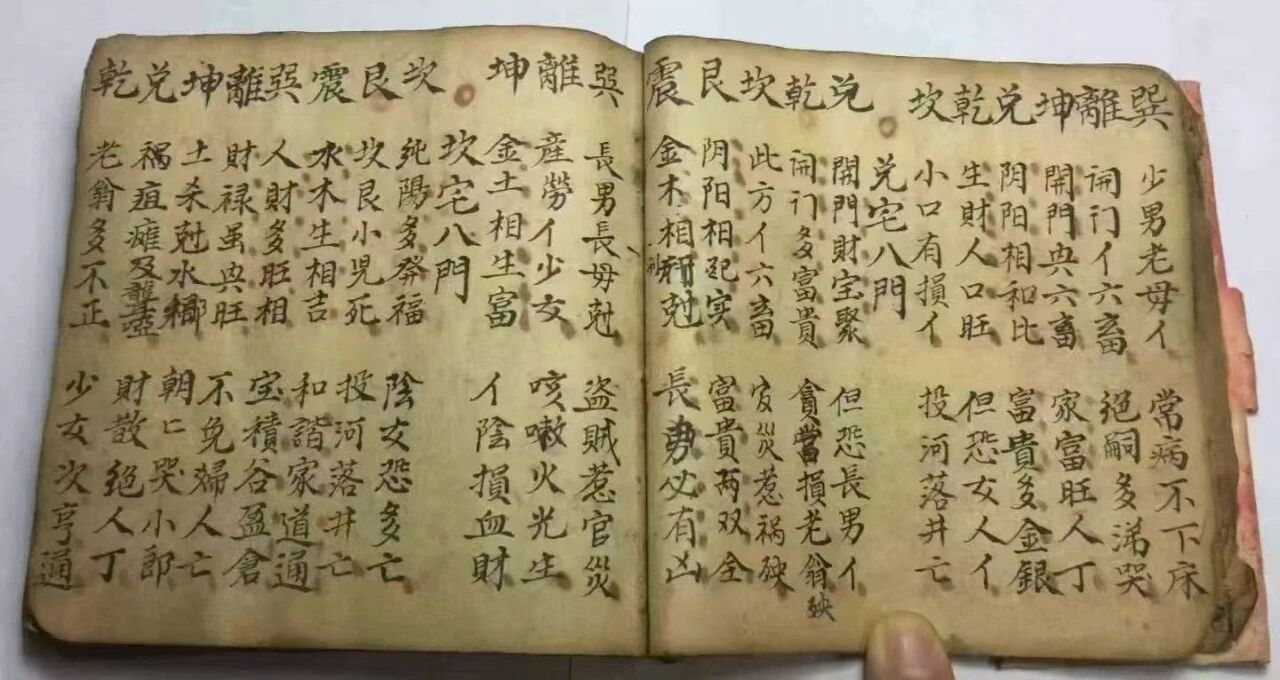 巽 少男老母亻 常病不下床
離 開门亻六畜 绝嗣多涕哭
坤 開門典六畜 家富旺人丁
兑 阴阳相和比 富貴多金銀
乾 生財人口旺 但恐女人亻
坎 小口有損亻 投河落井亡
兑宅八門
兑 開門財宝聚 但恐長男亻
乾 開门多富貴 損老翁殃
坎 此方亻六畜 官災惹祸殃
艮 阴阳相配实 富貴两双全
震 金木相刑尅 長男必有凶
巽 長男長母尅 盗賊惹官災
離 産勞亻少女 咳嗽火光生
坤 金土相生富 亻陰損血財
坎宅八門
坎 純陽多發福 陰女恐多亡
艮 坎艮小児死 投河落井亡
震 水木生相吉 和諧家道通
巽 人財多旺相 宝積谷盈倉
離 財禄虽典旺 不免婦人亡
坤 土杀尅水鄉 朝二哭小郎
兑 禍疽瘫及聾啞 財散绝人丁
乾 老翁多不正 少女次亨通